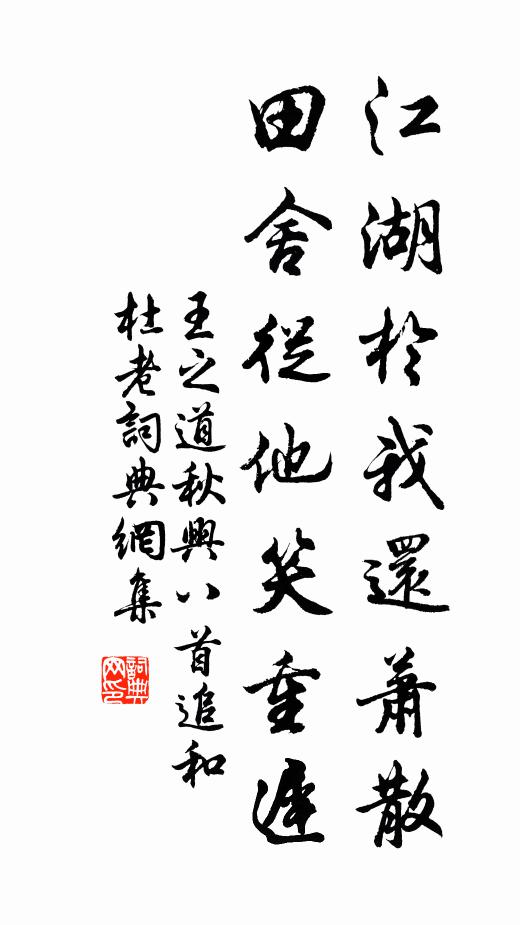 江湖於我還蕭散
田舍從他笑重遲
王之道秋興八首追和
杜老詞典網集
詞典
网印